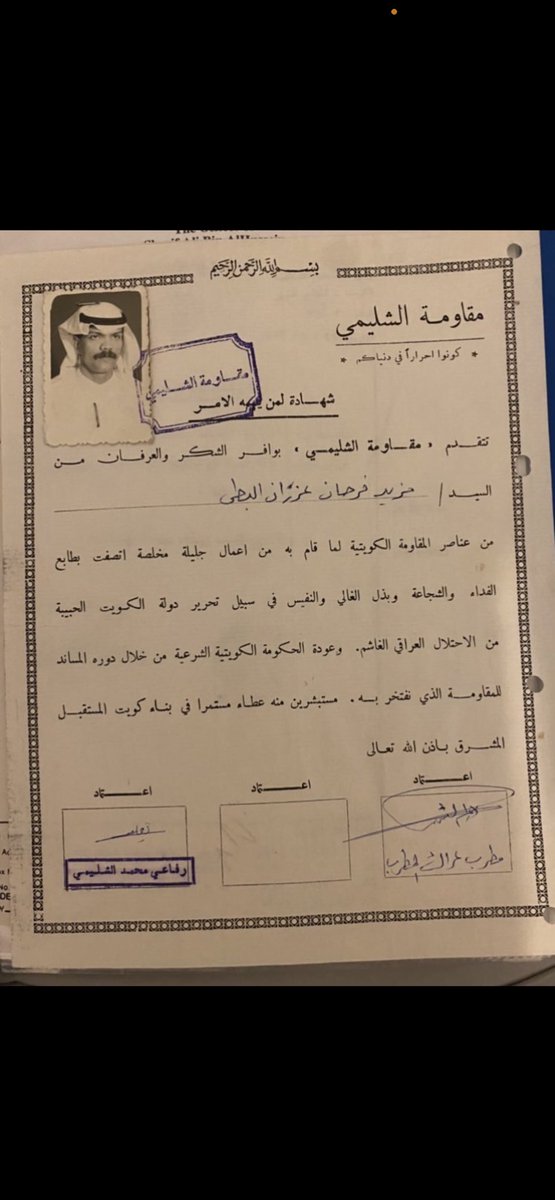 بسم الله الرحمن الرحيم
مقاومة الشليمي
* كونوا احراراً في دنياكم *
مقاومة الشليمي
شهادة لمن يهمه الامر
تتقدم « مقاومة الشليمي » بوافر الشكر والعرفان من
السيد / مزيد فرحان عزران
من عناصر المقاومة الكويتية لما قام به من اعمال جليلة مخلصة اتصفت بطابع
الفداء والشجاعة وبذل الغالي والنفيس في سبيل تحرير دولة الكويت الحبيبة
من الاحتلال العراقي الغاشم. وعودة الحكومة الكويتية الشرعية من خلال دوره المساند
للمقاومة الذي نفتخر به. مستبشرين منه عطاء مستمرا في بناء كويت المستقبل
المشرق باذن الله تعالى
اعتماد
اعتماد
اعتماد
مطرب
رفاعي محمد الشليمي